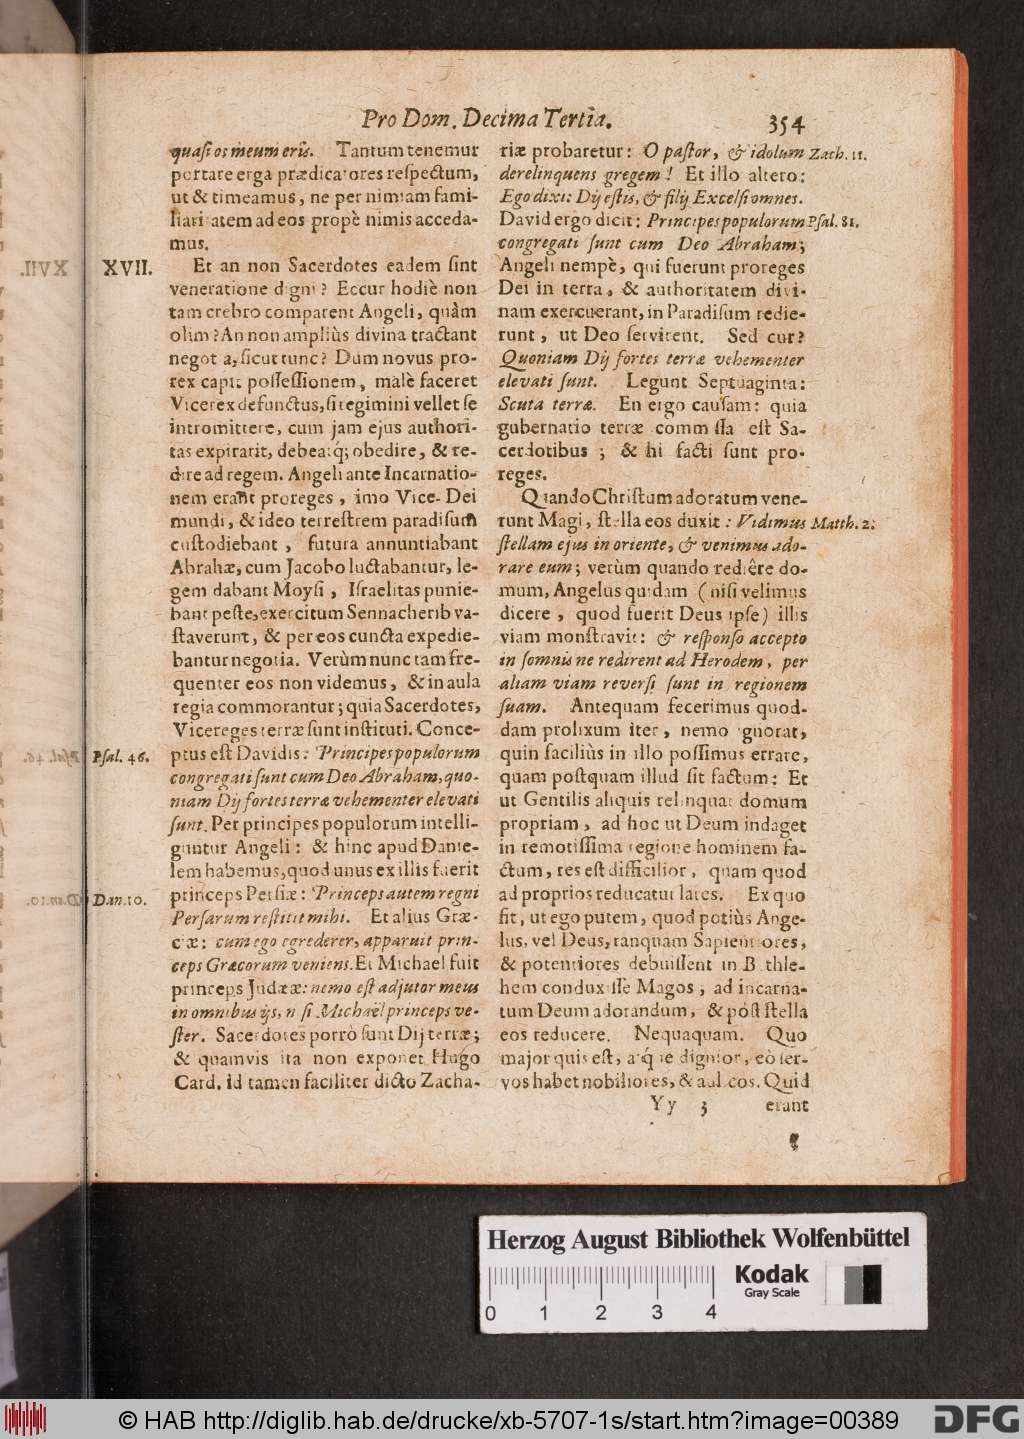 Pro Dom. Decima Tertia. 354
quasi os meum eris. Tantum tenemur
portare erga prædicatores respectum,
ut & timeamus, ne per nimiam fami-
liaritatem ad eos propè nimis acceda-
mus.
XVII. Et an non Sacerdotes eadem sint
veneratione digni? Eccur hodiè non
tam crebro comparent Angeli, quàm
olim? An non ampliùs divina tractant
negotia, sicut tunc? Dum novus pro-
rex capit possessionem, malè faceret
Vicerex defunctus, si regimini vellet se
intromittere, cum jam ejus authori-
tas expirarit, debeatq́; obedire, & re-
dire ad regem. Angeli ante Incarnatio-
nem erant proreges, imo Vice-Dei
mundi, & ideo terrestrem paradisum
custodiebant, futura annuntiabant
Abrahæ, cum Jacobo luctabantur, le-
gem dabant Moysi, Israelitas punie-
bant peste, exercitum Sennacherib va-
staverunt, & per eos cuncta expedie-
bantur negotia. Verùm nunc tam fre-
quenter eos non videmus, & in aula
regia commorantur; quia Sacerdotes,
Viceregesterræ sunt instituti. Conce-
Psal. 46. ptus est Davidis: Principes populorum
congregati sunt cum Deo Abraham, quo-
niam Dij fortes terræ vehementer elevati
sunt. Per principes populorum intelli-
guntur Angeli: & hinc apud Danie-
lem habemus, quod unus ex illis fuerit
Dan. 10. princeps Persiæ: Princeps autem regni
Persarum restitit mihi. Et alius Græ-
ciæ: cum ego egrederer, apparuit prin-
ceps Græcorum veniens. Et Michael fuit
princeps Judææ: nemo est adjutor meus
in omnibus ijs, nisi Michaël princeps ve-
ster. Sacerdotes porrò sunt Dij terræ;
& quamvis ita non exponet Hugo
Card. id tamen faciliter dicto Zacha-
riæ probaretur: O pastor, & idolum Zach. 11.
derelinquens gregem! Et illo altero:
Ego dixi: Dij estis, & filij Excelsi omnes.
David ergo dicit: Principes populorum Psal. 81.
congregati sunt cum Deo Abraham;
Angeli nempè, qui fuerunt proreges
Dei in terra, & authoritatem divi-
nam exercuerant, in Paradisum redie-
runt, ut Deo servirent. Sed cur?
Quoniam Dij fortes terræ vehementer
elevati sunt. Legunt Septuaginta:
Scuta terræ. En ergo causam: quia
gubernatio terræ commissa est Sa-
cerdotibus; & hi facti sunt pro-
reges.
Quando Christum adoratum vene-
runt Magi, stella eos duxit: Vidimus Matth. 2.
stellam ejus in oriente, & venimus ado-
rare eum; verùm quando rediêre do-
mum, Angelus quidam (nisi velimus
dicere, quod fuerit Deus ipse) illis
viam monstravit: & responso accepto
in somnis ne redirent ad Herodem, per
aliam viam reversi sunt in regionem
suam. Antequam fecerimus quod-
dam prolixum iter, nemo ignorat,
quin faciliùs in illo possimus errare,
quam postquam illud sit factum: Et
ut Gentilis aliquis relinquat domum
propriam, ad hoc ut Deum indaget
in remotissima regione hominem fa-
ctum, res est difficilior, quam quod
ad proprios reducatur lares. Ex quo
fit, ut ego putem, quod potiùs Ange-
lus, vel Deus, tanquam Sapientiores,
& potentiores debuissent in Bethle-
hem conduxisse Magos, ad incarna-
tum Deum adorandum, & póst stella
eos reducere. Nequaquam. Quo
major quis est, atq́ue dignior, eò ser-
vos habet nobiliores, & aulicos. Quid
Yy 3 erant
Herzog August Bibliothek Wolfenbüttel
0 1 2 3 4
Kodak
Gray Scale
© HAB http://diglib.hab.de/drucke/xb-5707-1s/start.htm?image=00389
DFG